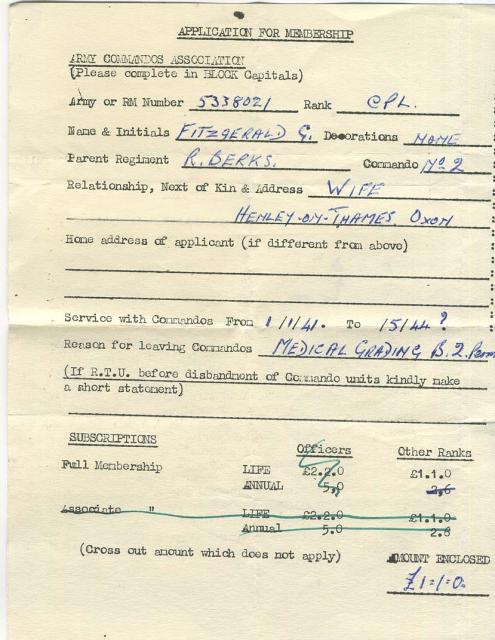 APPLICATION FOR MEMBERSHIP
ARMY COMMANDOS ASSOCIATION
(Please complete in BLOCK Capitals)
Army or RM Number 5338021 Rank CPL.
Name & Initials FITZGERALD G. Decorations NONE
Parent Regiment R. BERKS. Commando No 2
Relationship, Next of Kin & Address WIFE
HENLEY-ON-THAMES. OXON
Home address of applicant (if different from above)
Service with Commandos From 1/1/41. To 15/44?
Reason for leaving Commandos MEDICAL GRADING B.2.
(If R.T.U. before disbandment of Commando units kindly make
a short statement)
SUBSCRIPTIONS Officers Other Ranks
Full Membership LIFE £2.2.0 £1.1.0
ANNUAL 5.0 2.6
Associate " LIFE £2.2.0 £1.1.0
Annual 5.0 2.6
(Cross out amount which does not apply) AMOUNT ENCLOSED
£1=1=0.